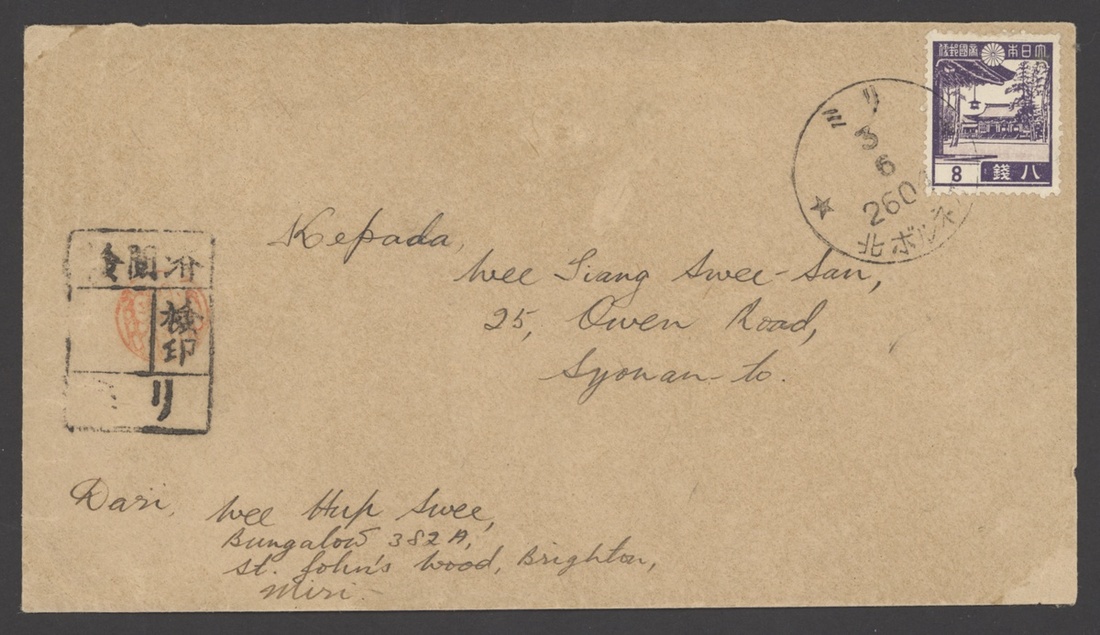 大日本帝國郵便
8
八錢
ミリ
3
6
260
北ボルネ
濟閲檢
檢印
リ
Kepada,
Wee Siang Swee-San,
25, Owen Road,
Syonan-to.
Dari,
Wee Hup Swee,
Bungalow 382A,
St. John's Wood, Brighton,
Miri.-